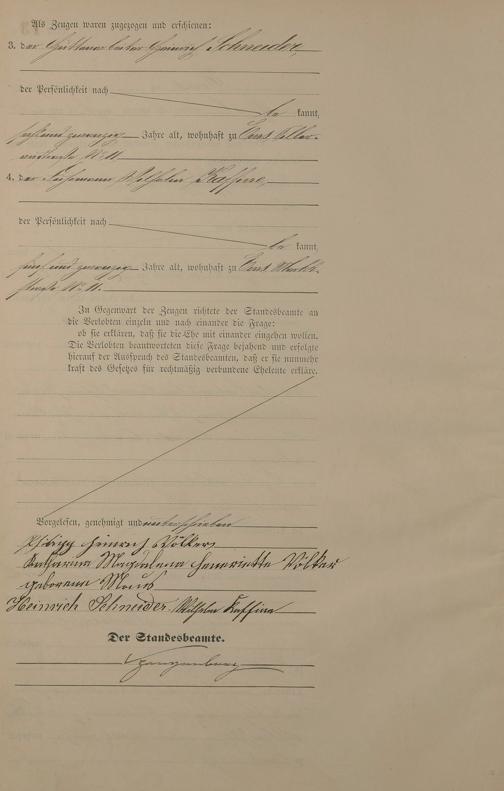 Als Zeugen waren zugezogen und erschienen:
3. der Hüttenarbeiter Heinrich Schneider,
der Persönlichkeit nach be kannt,
sechsundzwanzig Jahre alt, wohnhaft zu Ems
straße No 11
4. der Fuhrmann Wilhelm Kaffine,
der Persönlichkeit nach be kannt,
fünfundzwanzig Jahre alt, wohnhaft zu Ems
straße No 11.
In Gegenwart der Zeugen richtete der Standesbeamte an
die Verlobten einzeln und nach einander die Frage:
ob sie erklären, daß sie die Ehe mit einander eingehen wollen.
Die Verlobten beantworteten diese Frage bejahend und erfolgte
hierauf der Ausspruch des Standesbeamten, daß er sie nunmehr
kraft des Gesetzes für rechtmäßig verbundene Eheleute erkläre.
Vorgelesen, genehmigt und unterschrieben
Philipp Heinrich Völker,
Katharina Magdalena Henriette Völker
geborene Maus
Heinrich Schneider Wilhelm Kaffine
Der Standesbeamte.